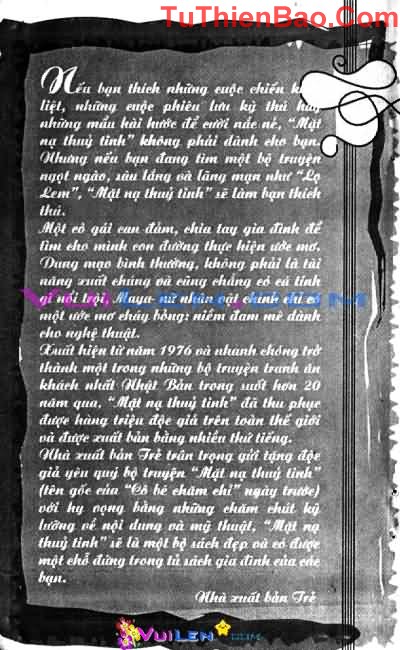 TuThienBao.Com
Nếu bạn thích những cuộc chiến
liệt, những cuộc phiêu lưu kỳ thú hay
những mẩu hài hước để cười nắc nẻ, “Mặt
nạ thuỷ tinh” không phải dành cho bạn.
Nhưng nếu bạn đang tìm một bộ truyện
ngọt ngào, sâu lắng và lãng mạn như “Lọ
Lem”, “Mặt nạ thuỷ tinh” sẽ làm bạn thích
thú.
Một cô gái can đảm, chia tay gia đình để
tìm cho mình con đường thực hiện ước mơ.
Dung mạo bình thường, không phải là tài
năng xuất chúng và cũng chẳng có cá tính
gì nổi trội, Maya-nữ nhân vật chính chỉ có
một ước mơ cháy bỏng: niềm đam mê dành
cho nghệ thuật.
Xuất hiện từ năm 1976 và nhanh chóng trở
thành một trong những bộ truyện tranh ăn
khách nhất Nhật Bản trong suốt hơn 20
năm qua, “Mặt nạ thuỷ tinh” đã thu phục
được hàng triệu độc giả trên toàn thế giới
và được xuất bản bằng nhiều thứ tiếng.
Nhà xuất bản Trẻ trân trọng gửi tặng độc
giả yêu quý bộ truyện “Mặt nạ thuỷ tinh”
(tên gốc của “Cô bé chăm chỉ” ngày trước)
với hy vọng bằng những chăm chút kỹ
lưỡng về nội dung và mỹ thuật, “Mặt nạ
thuỷ tinh” sẽ là một bộ sách đẹp và có được
một chỗ đứng trong tủ sách gia đình của các
bạn.
Nhà xuất bản Trẻ
VuiLen.com